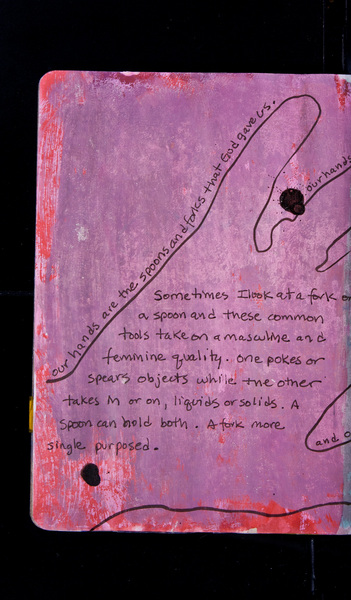 our hands are the spoons and forks that God gave us.
our hands
Sometimes I look at a fork or
a spoon and these common
tools take on a masculine and
feminine quality. one pokes or
spears objects while the other
takes in or on, liquids or solids. A
spoon can hold both. A fork more
single purposed.
and o